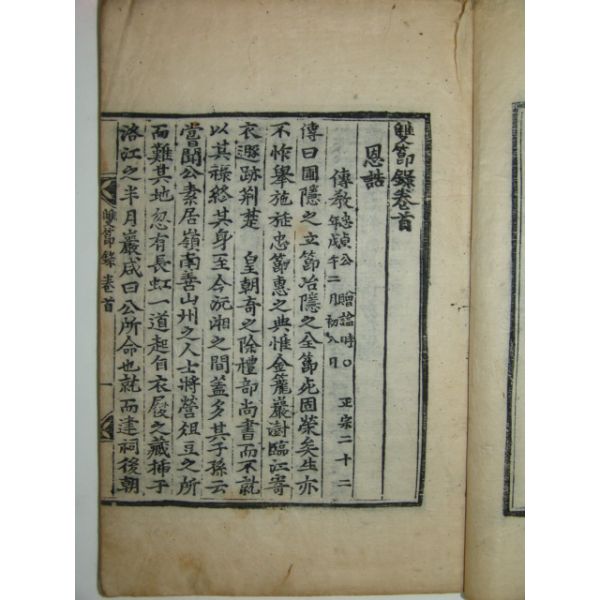 雙節錄卷首
恩誥
傳敎忠貞公贈諡時○正宗二十二年戊午二月初八日
傳曰圃隱之立節冶隱之全節死固榮矣生亦
不怍舉施旌忠節惠之典惟金籠巖澍臨江寄
衣遯跡荊楚 皇朝奇之除禮部尚書而不就
以其祿終其身至今沅湘之間蓋多其子孫云
嘗聞公素居嶺南善山州之人士將營俎豆之所
而難其地忽有長虹一道起自衣履之藏揷于
洛江之半月巖咸曰公所命也就而建祠後朝
雙節錄 卷首
一